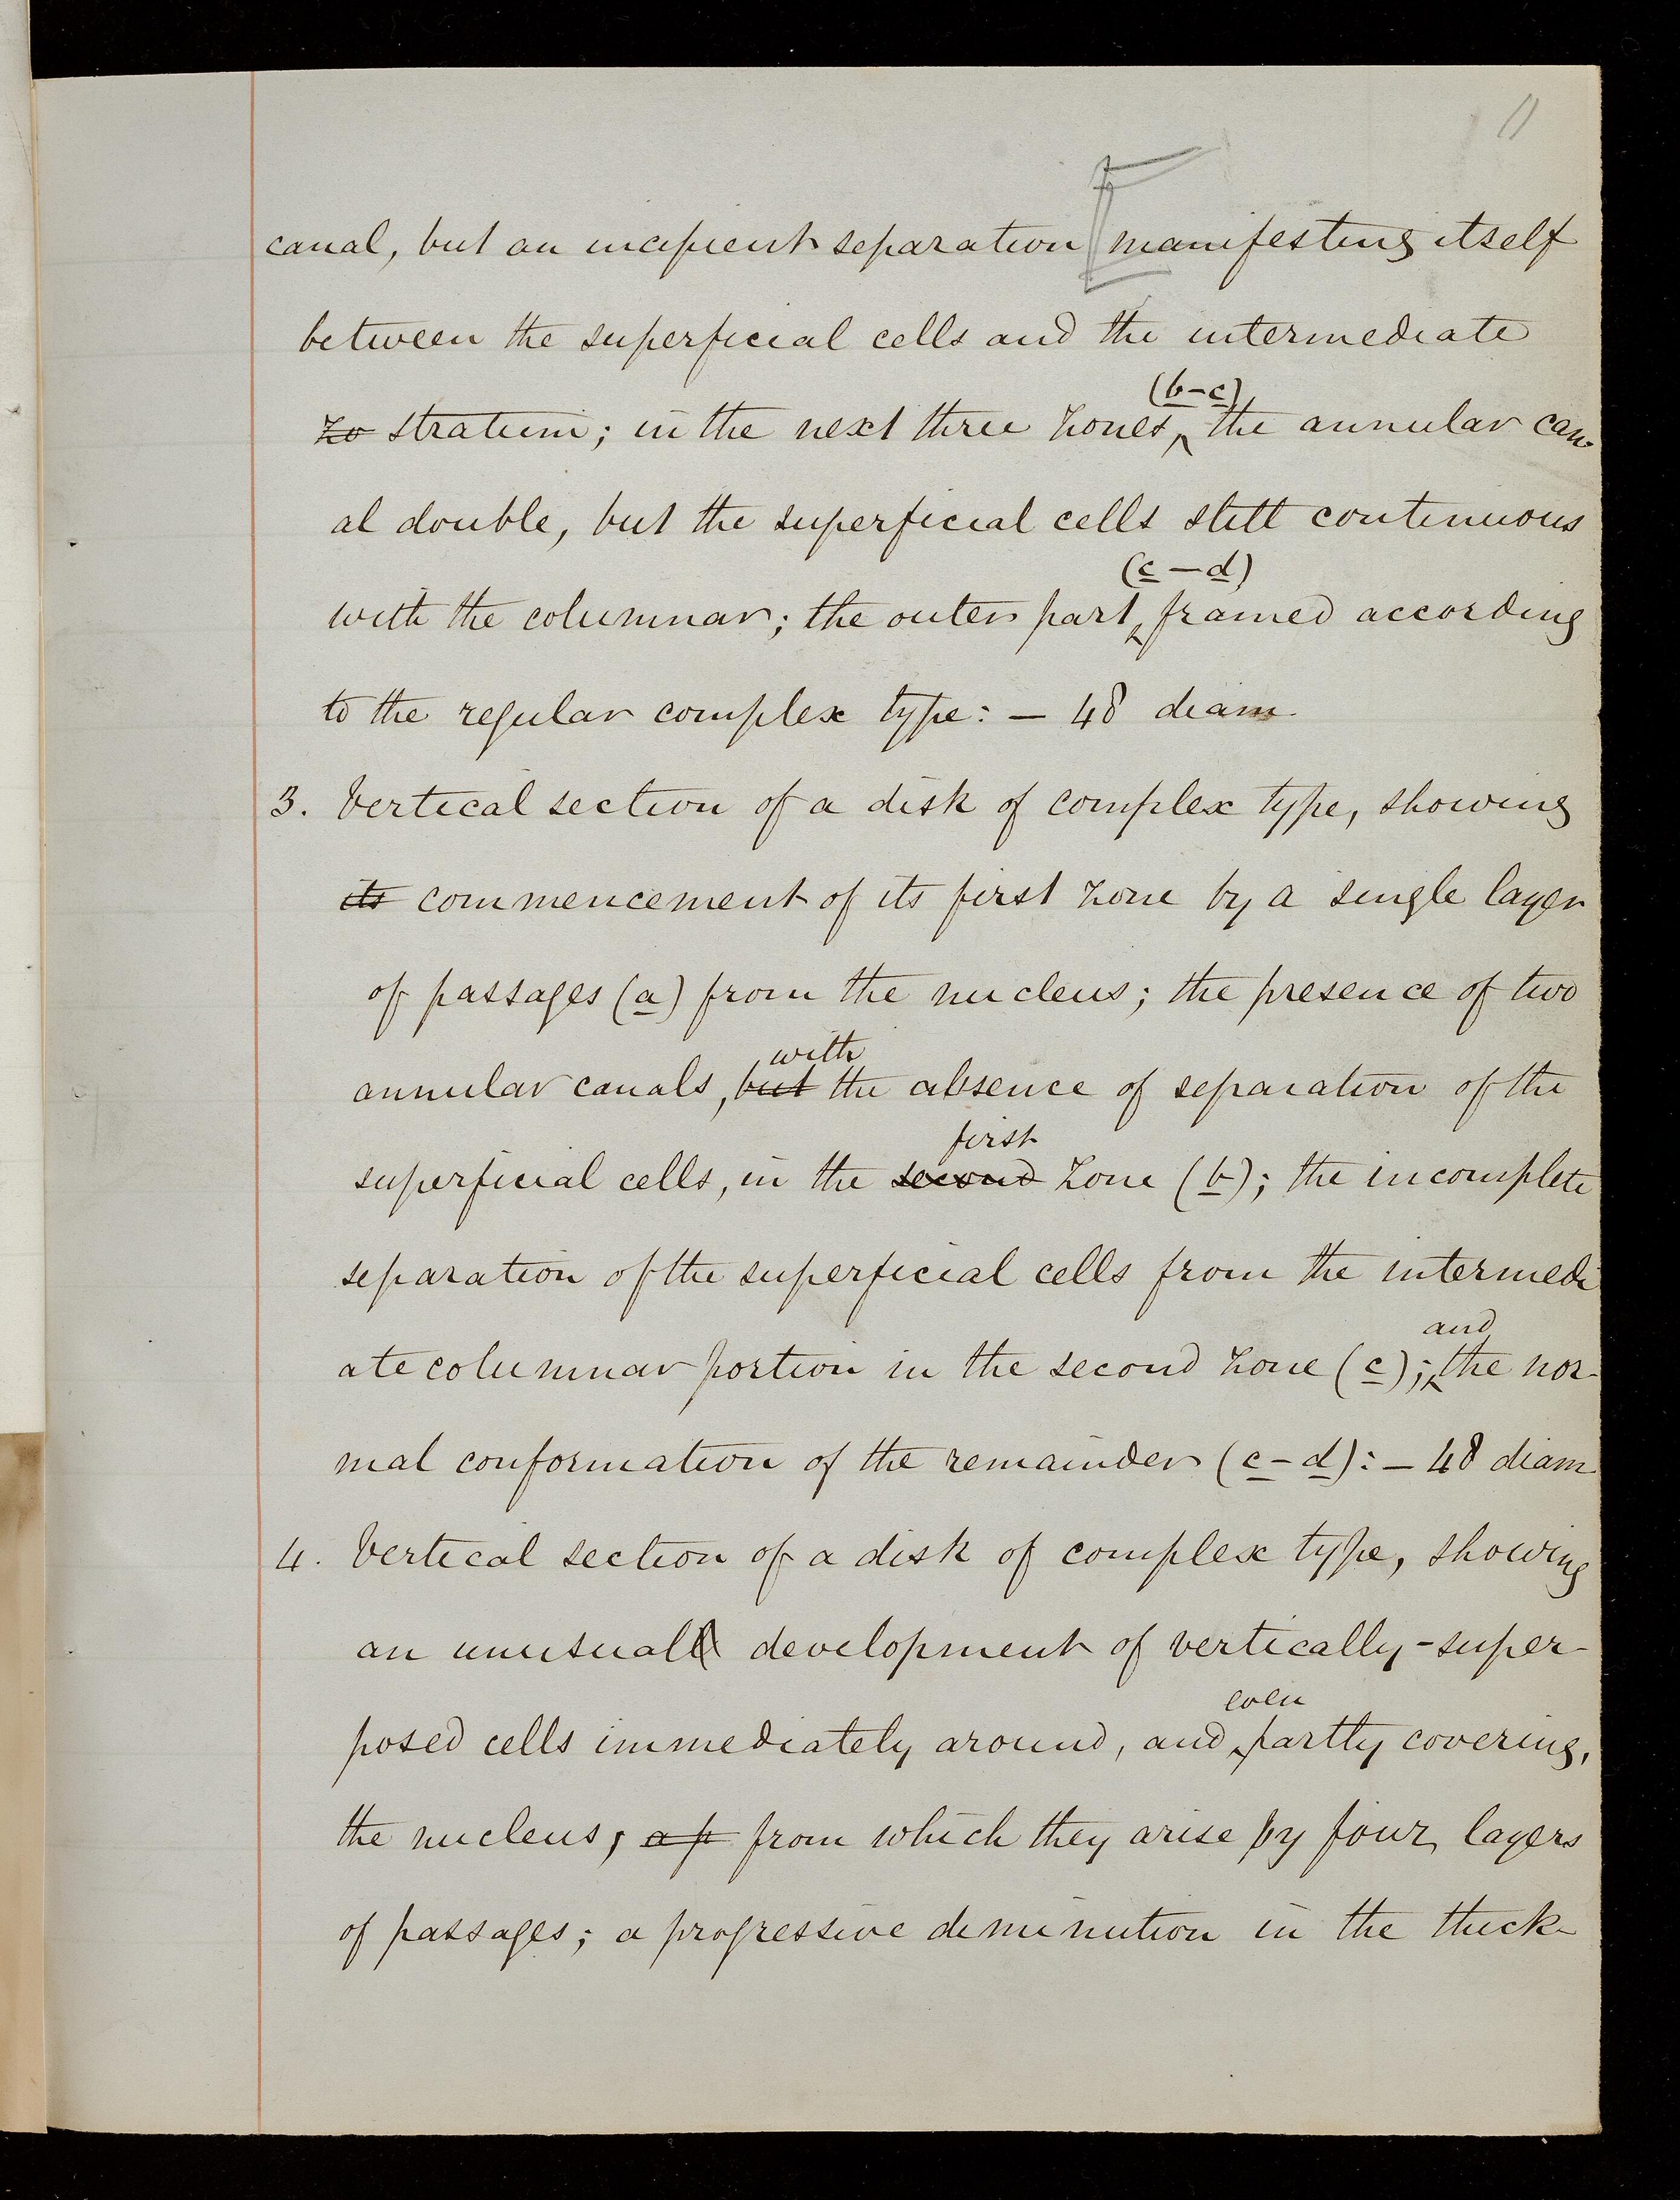 11
canal, but an incipient separation [manifesting itself
between the superficial cells and the intermediate
(b-c)
zo stratum; in the next three zones, the annular can-
al double, but the superficial cells still continuous
(c-d)
with the columnar; the outer part framed according
to the regular complex type:- 48 diam.
3. Vertical section of a disk of complex type, showing
its commencement of its first zone by a single layer
of passages (a) from the nucleus; the presence of two
with
annular canals, but the absence of separation of the
first
superficial cells, in the second zone (b); the incomplete
separation of the superficial cells from the intermedi
and
ate columnar portion in the second zone (c); the nor-
mal conformation of the remainder (c-d):- 48 diam.
4. Vertical section of a disk of complex type, showing
an unusuall development of vertically-super-
even
posed cells immediately around, and partly covering,
the nucleus, ap from which they arise by four layers
of passages; a progressive diminution in the thick-